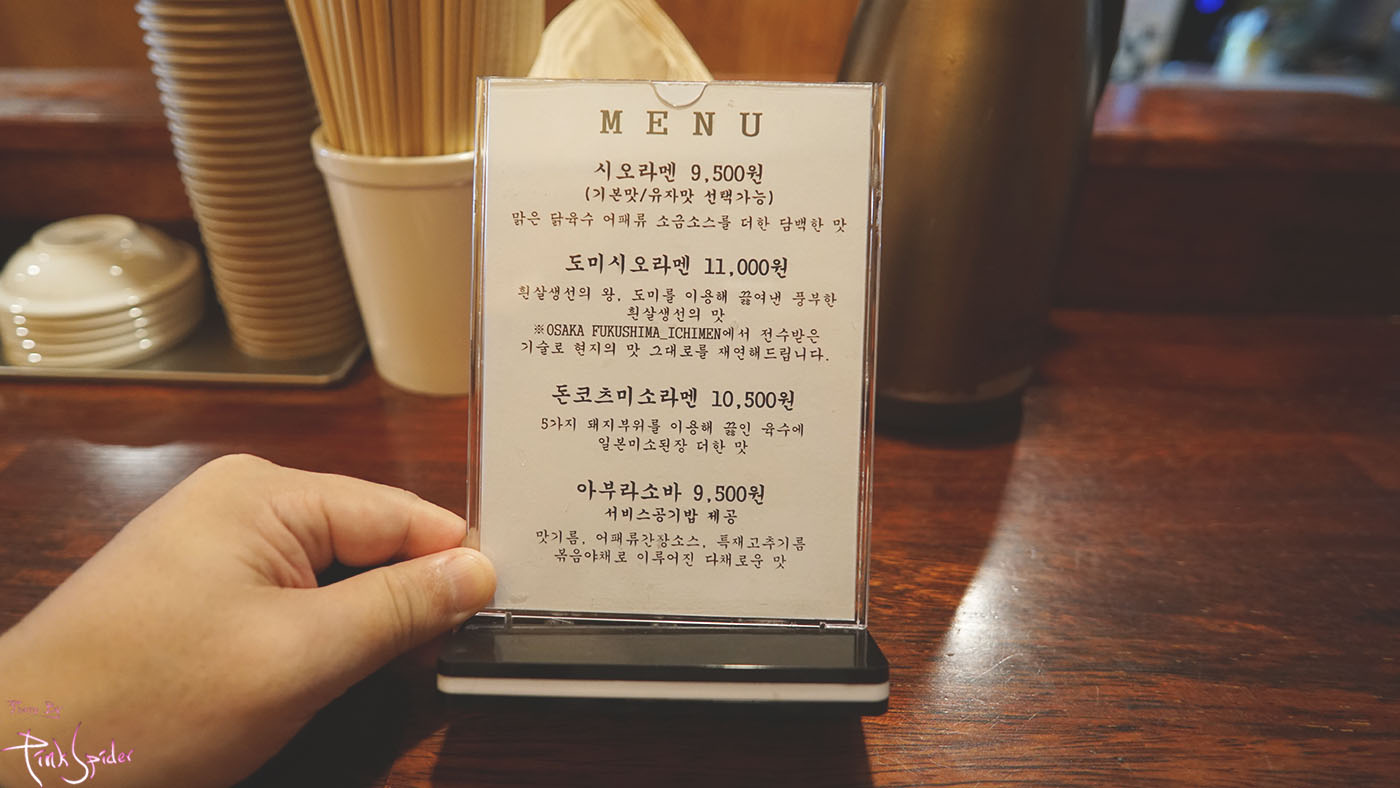 MENU
시오라멘 9,500원
(기본맛/유자맛 선택가능)
맑은 닭육수 어패류 소금소스를 더한 담백한 맛
도미시오라멘 11,000원
흰살생선의 왕, 도미를 이용해 끓여낸 풍부한
흰살생선의 맛
※OSAKA FUKUSHIMA_ICHIMEN에서 전수받은
기술로 현지의 맛 그대로를 재연해드립니다.
돈코츠미소라멘 10,500원
5가지 돼지부위를 이용해 끓인 육수에
일본미소된장 더한 맛
아부라소바 9,500원
서비스공기밥 제공
맛기름, 어패류간장소스, 특재고추기름
볶음야채로 이루어진 다채로운 맛
Pink Spider